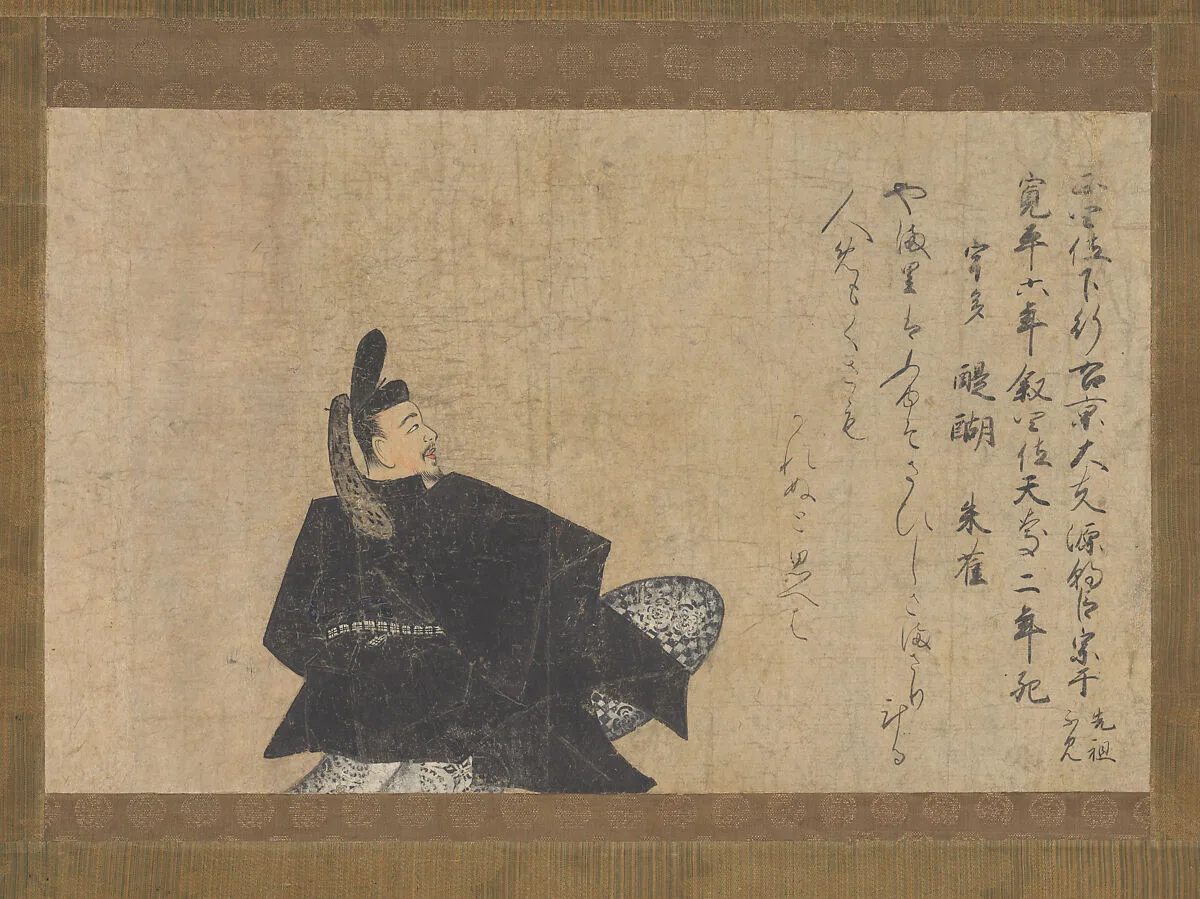 正四位下行右京大夫源朝臣宗于 先祖
不見
寛平六年叙四位天慶二年死
宇多 醍醐 朱雀
や満里はふゆそさひしさまさり計る
人めもくさも
かれぬと思へは